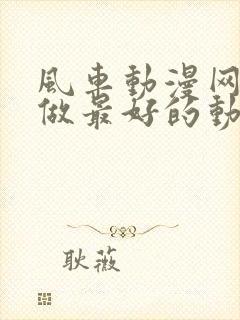 風車動漫网
做最好的動
耿薇